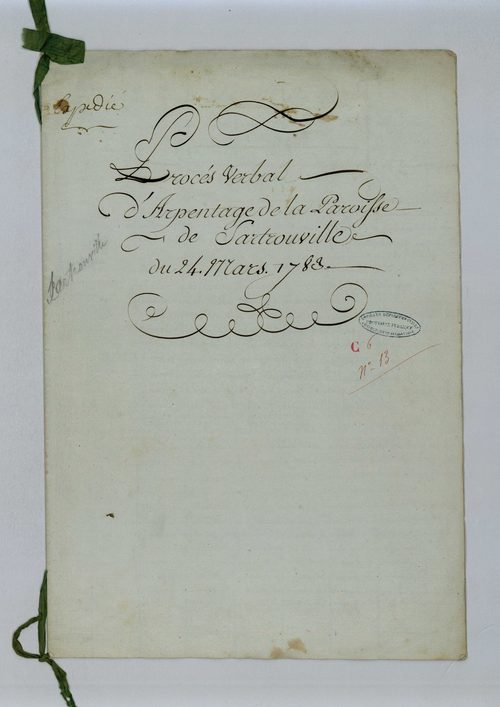 Expedié
Procés Verbal
d'Arpentage de la Paroisse
de Sartrouville
du 24. Mars. 1783.
Sartrouville
C 6
n° 13